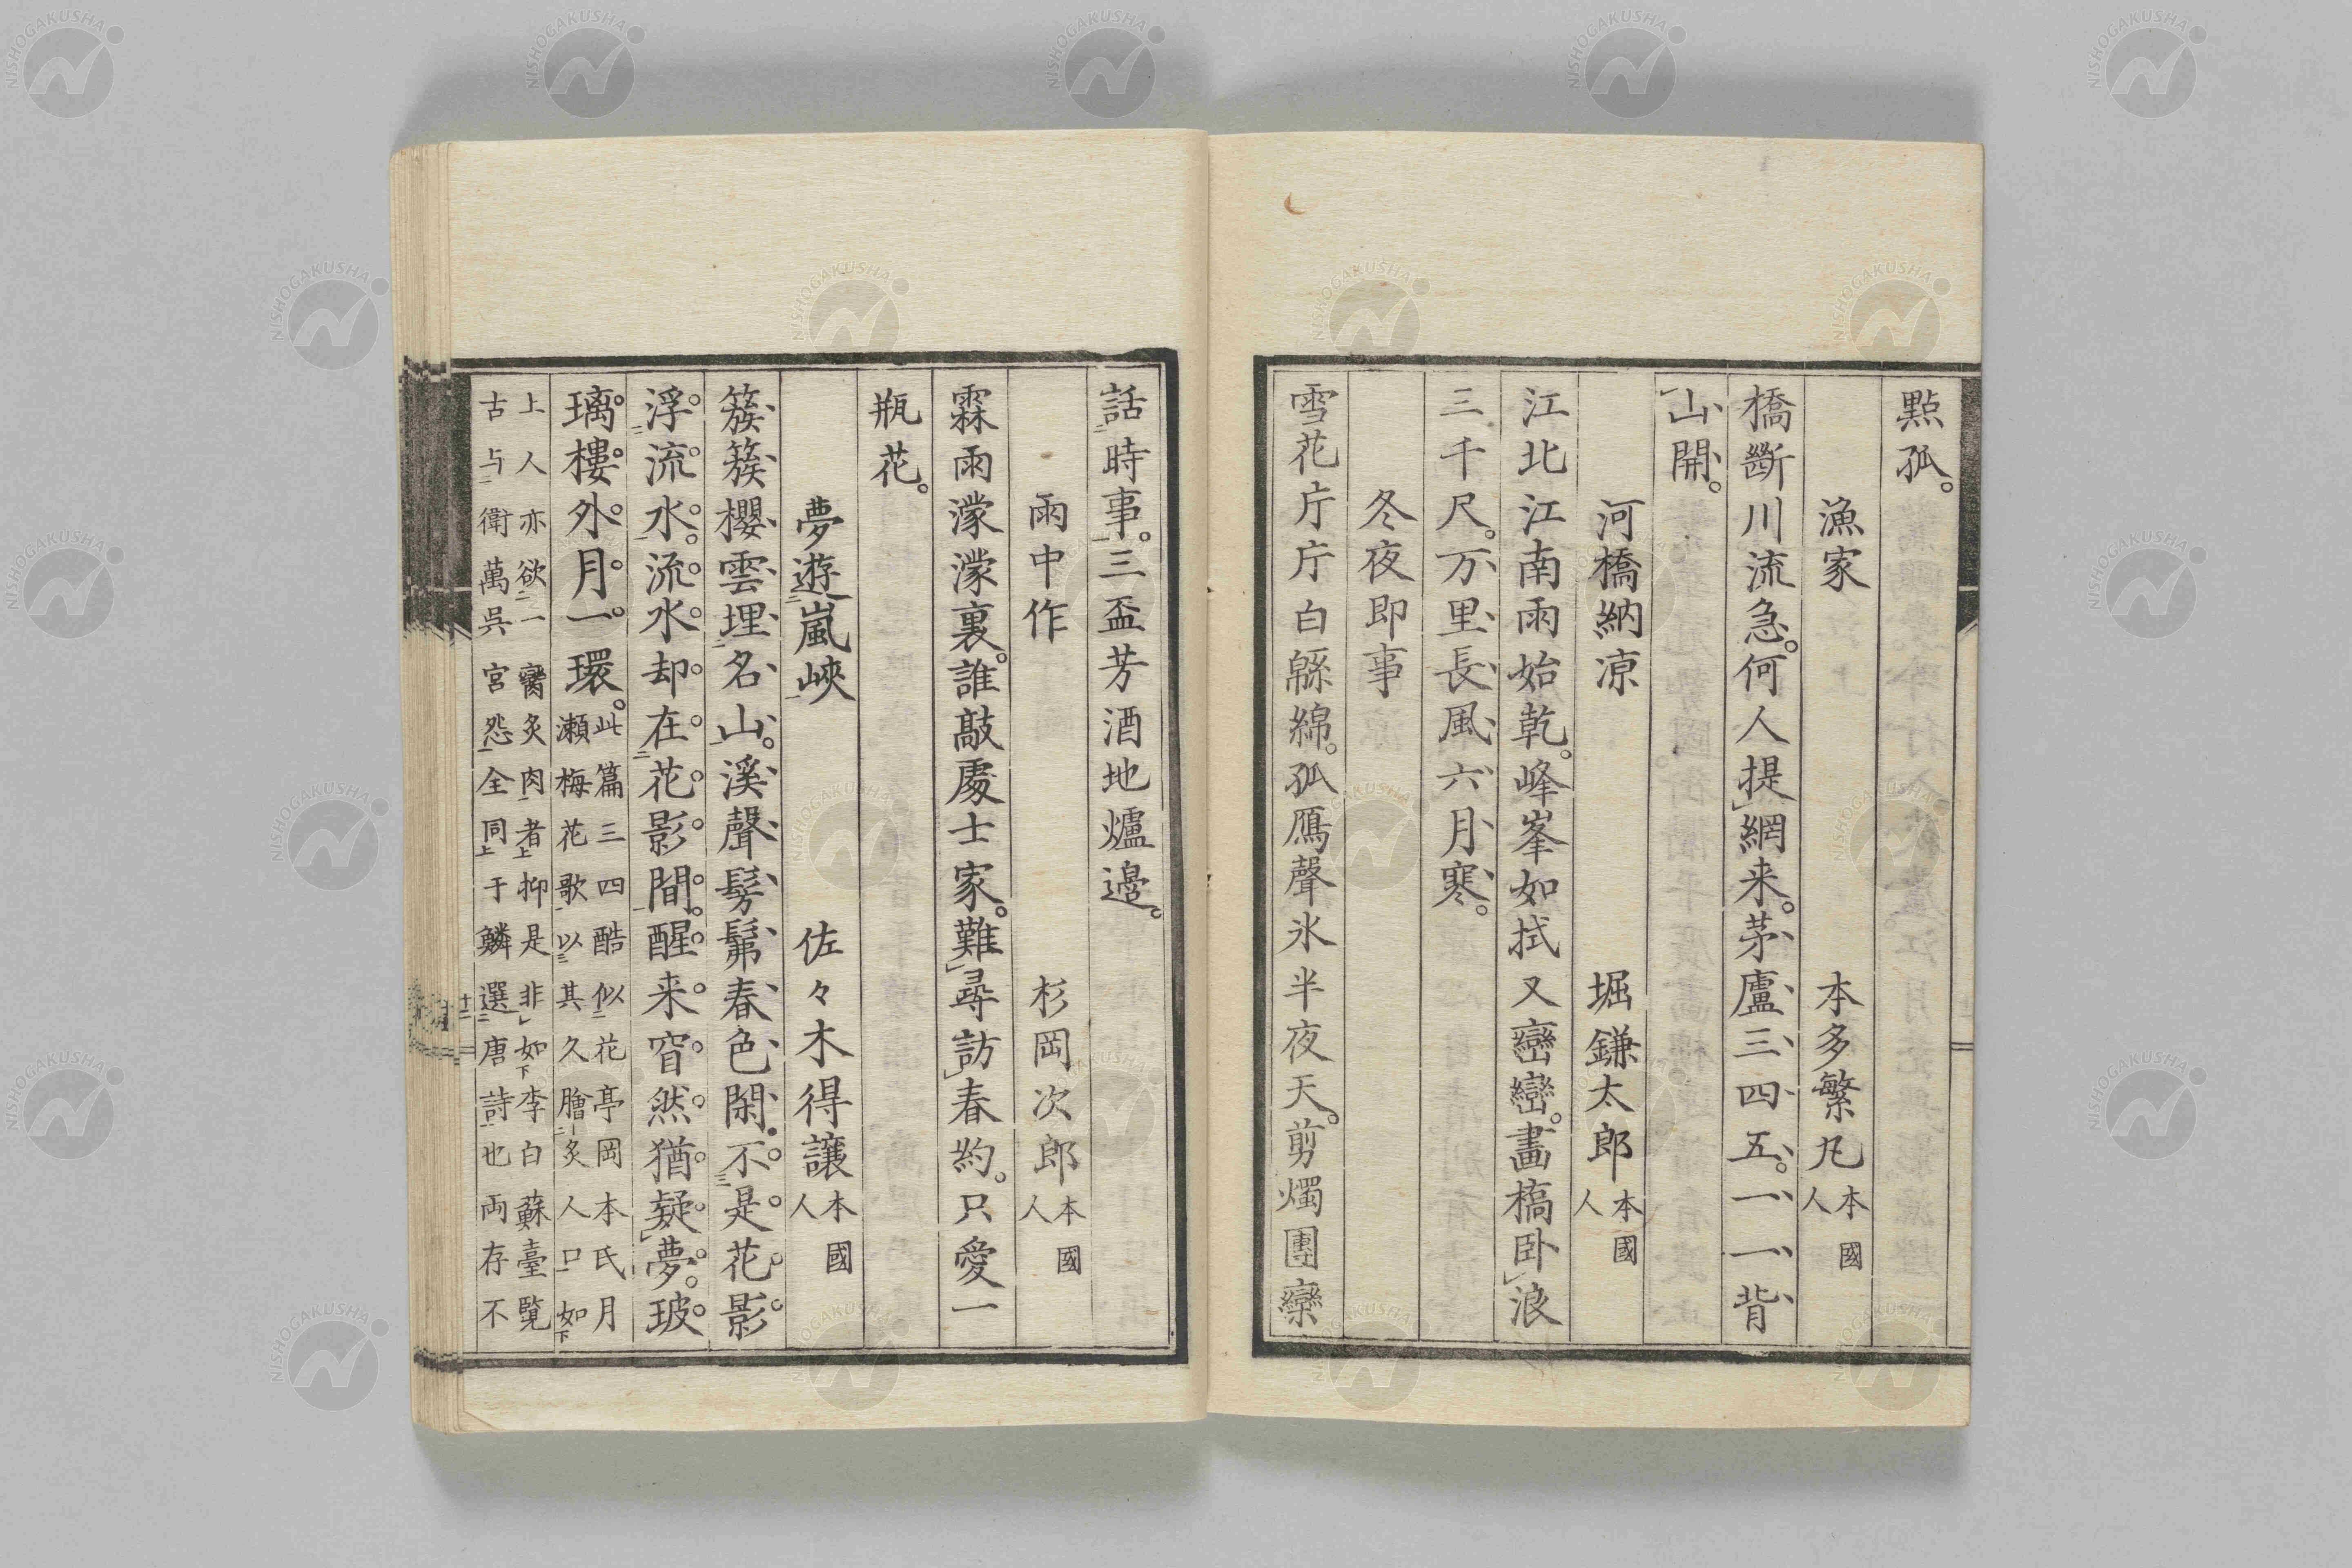 點孤。
漁家　本多繁凡本國人
橋斷川流急。何人提網来。茅廬三四五。一一背
山開。
河橋納凉　堀鎌太郎本國人
江北江南雨始乾。峰峯如拭又巒巒。畫橋卧浪
三千尺。万里長風六月寒。
冬夜即事
雪花片片白緜綿。孤鴈聲氷半夜天。剪燭團欒
話二時事一。三盃芳酒地爐邉。
雨中作　杉岡次郎本國人
霖雨濛濛裏。誰敲處士家。難尋訪春約。只愛一
瓶花。
夢遊二嵐峽一　佐々木得讓本國人
簇簇櫻雲埋二名山一。溪聲髣髴春色閑。不三是花影
浮二流水一。流水却在二花影間一。醒来窅然猶疑夢。玻
璃樓外月一環。此篇三四酷似二花亭岡本氏月
瀬梅花歌一以三其久膾二炙人口一如下
上人亦欲二一臠炙肉一者上抑是非如下李白蘇臺覧
古与一衛萬呉宮怨一全同上于鱗選二唐詩一也両存不
十二
NISHOGAKUSHA